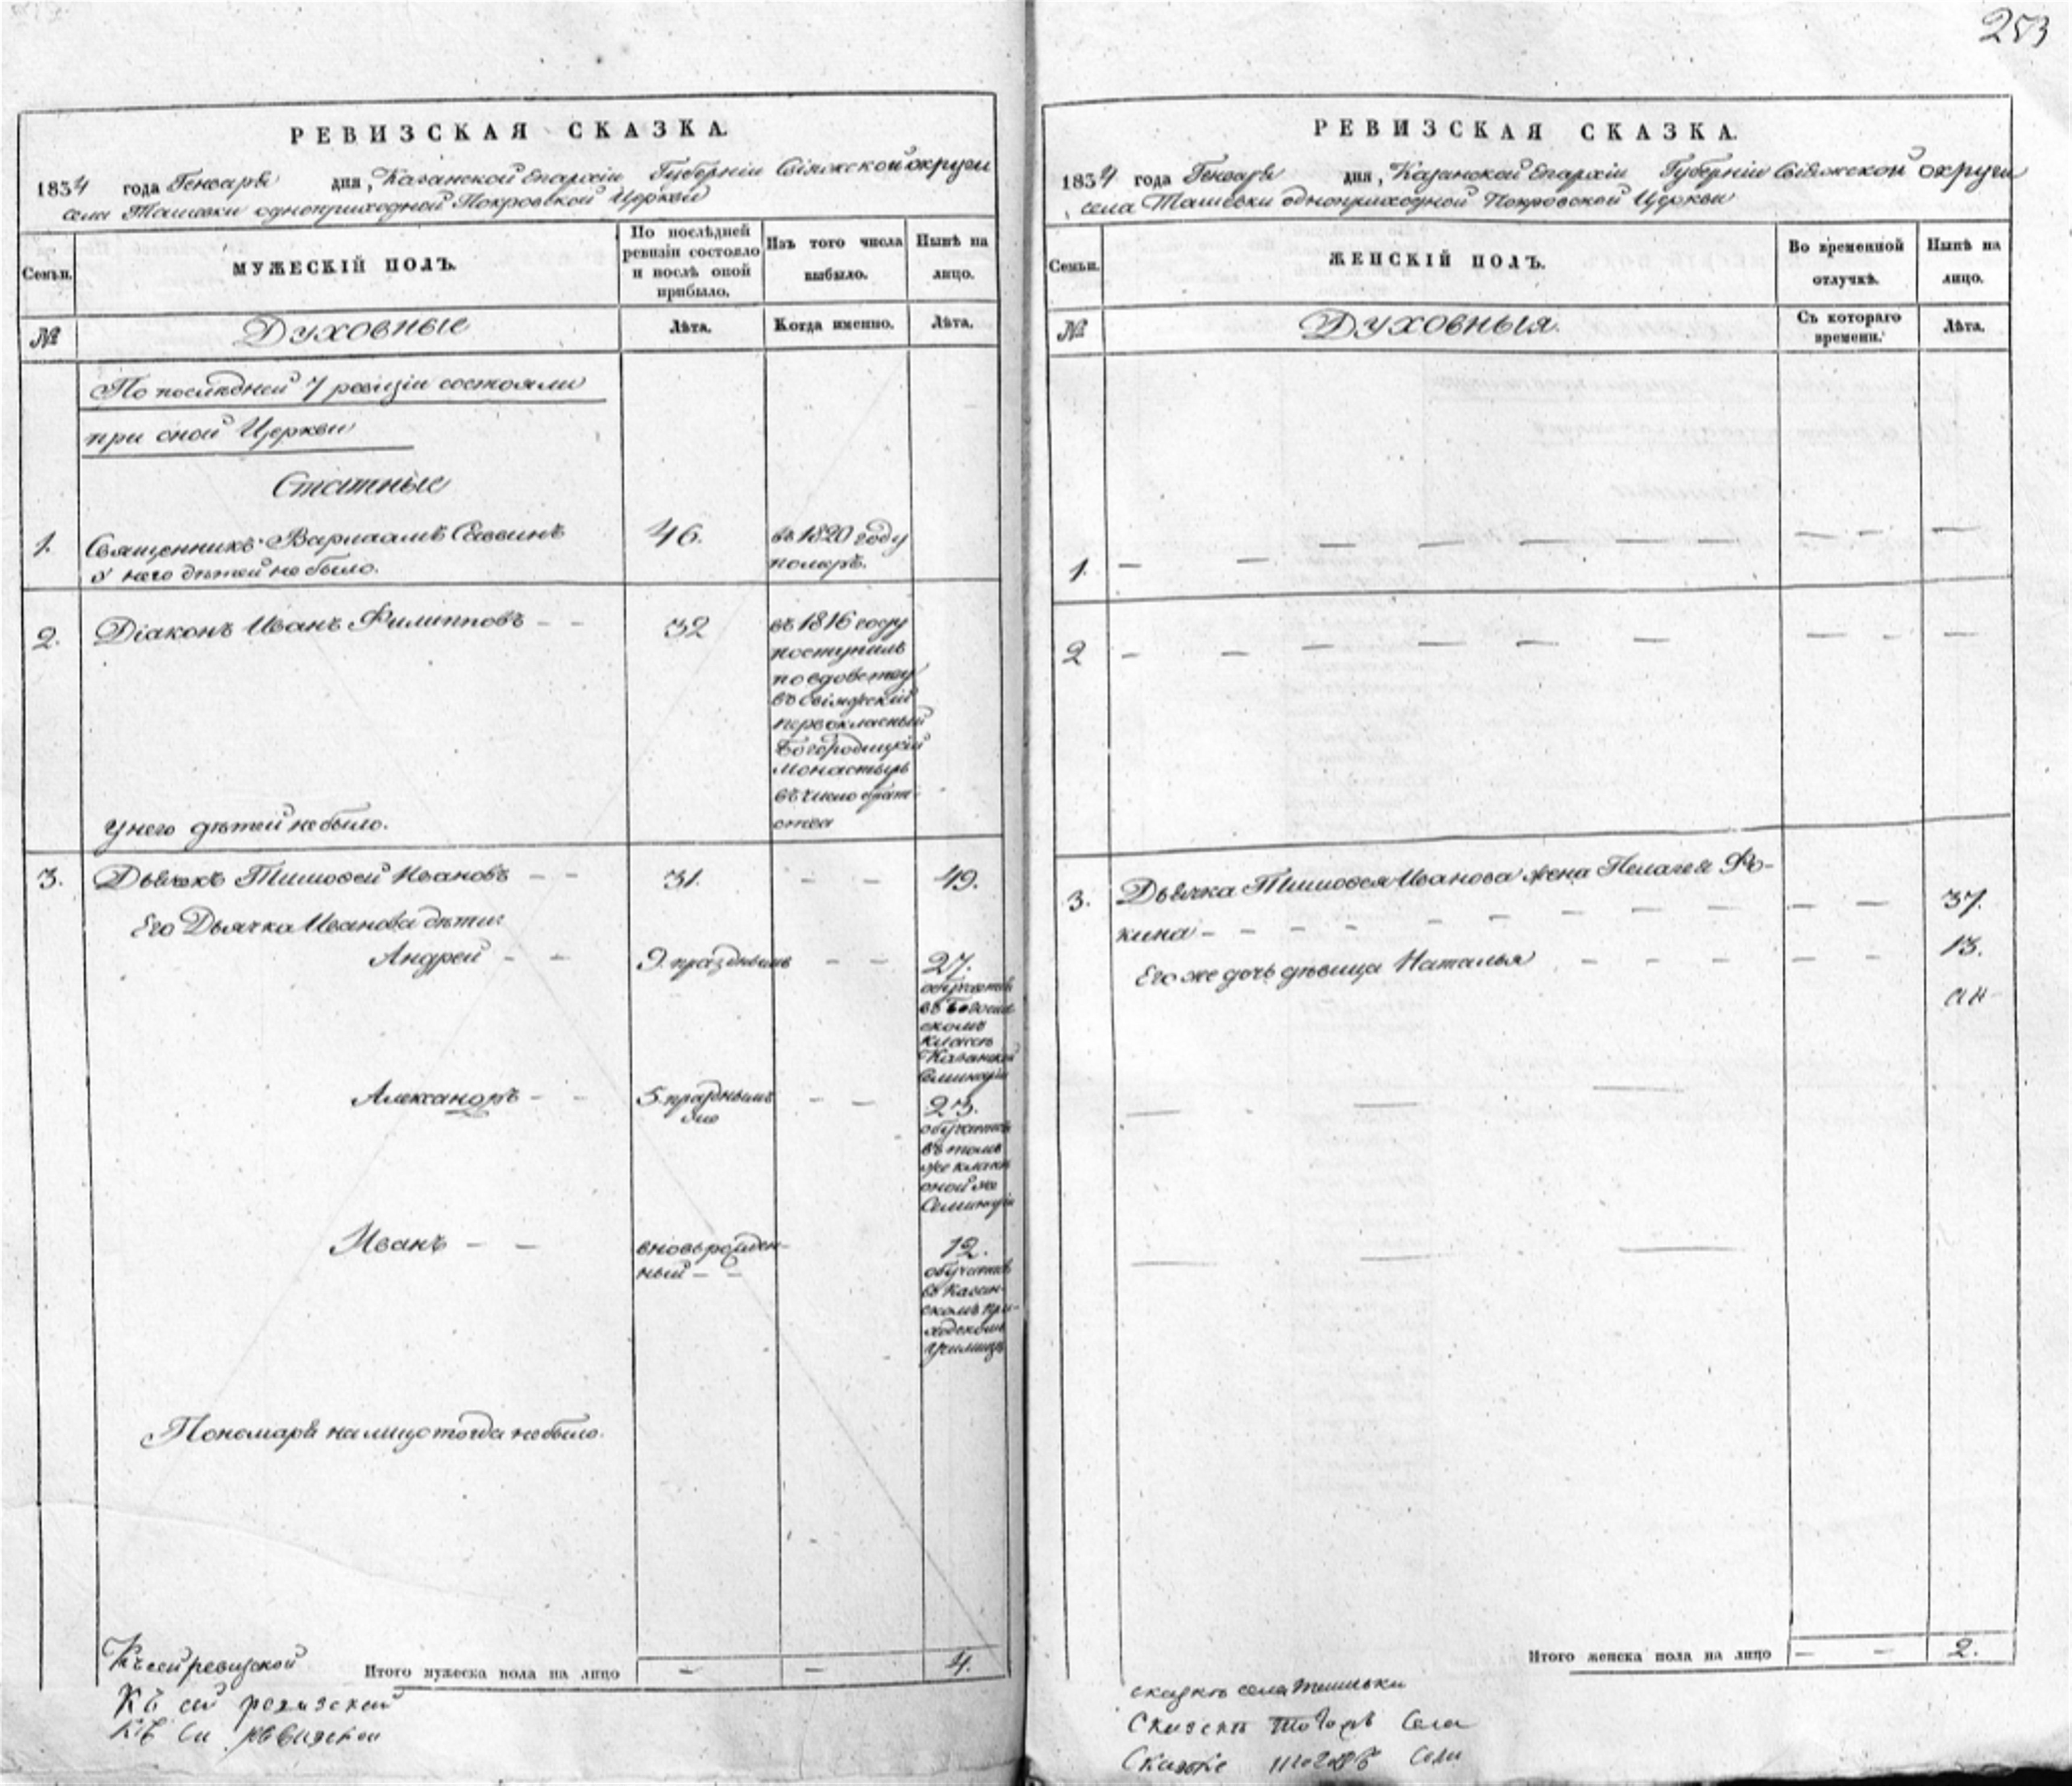 253
РЕВИЗСКАЯ СКАЗКА.
1834 года Генваря дня, Казанской Епархіи Губерніи Свіяжской округи
села Ташевки одноприходной Покровской Церкви
Семьи.
МУЖЕСКІЙ ПОЛЪ.
По послѣдней ревизіи состояло и послѣ оной прибыло.
Изъ того числа выбыло.
Нынѣ на лицо.
№
Духовные
Лѣта.
Когда именно.
Лѣта.
По последней 7 ревизіи состояли
при оной Церкви
Статные
1.
Священникъ Варлаамъ Саввинъ
у него дѣтей не было.
46.
въ 1820 году
померъ.
2.
Діаконъ Иванъ Филипповъ - -
32
въ 1816 году
поступилъ
по вдовству
въ Свіяжскій
первокласный
Богородицкій
Монастырь
въ число брат-
ства
У него дѣтей не было.
3.
Дьячекъ Тимофей Ивановъ - -
31.
- -
49.
Его Дьячка Иванова дѣти:
Андрей - -
9. праздныхъ
- -
27.
обучается
въ
скомъ
классѣ
Казанской
Семинаріи
Александръ - -
5. праздныхъ
- -
23.
обучается
въ томъ
же классѣ
оной же
Семинаріи
Иванъ - -
вновьрожден-
ный - -
12.
обучается
въ Казан-
скомъ при-
ходскомъ
училищѣ
Пономаря на лицо тогда не было.
Итого мужеска пола на лицо
-
-
4.
Къ сей ревизской
Къ сей ревизской
Къ си ревизской
РЕВИЗСКАЯ СКАЗКА.
1834 года Генваря дня, Казанской Епархіи Губерніи Свіяжской округи
села Ташевки одноприходной Покровской Церкви
Семьи.
ЖЕНСКІЙ ПОЛЪ.
Во временной отлучкѣ.
Нынѣ на лицо.
№
Духовныя.
Съ котораго времени.
Лѣта.
1.
2
3.
Дьячка Тимофея Иванова жена Пелагея Фо-
кина - - - - - - - - -
37.
Его же дочь дѣвица Наталья - - - -
13.
Итого женска пола на лицо
- -
2.
сказкѣ села Ташевки
Сказкѣ тогожъ Села
Сказке тогожъ Села